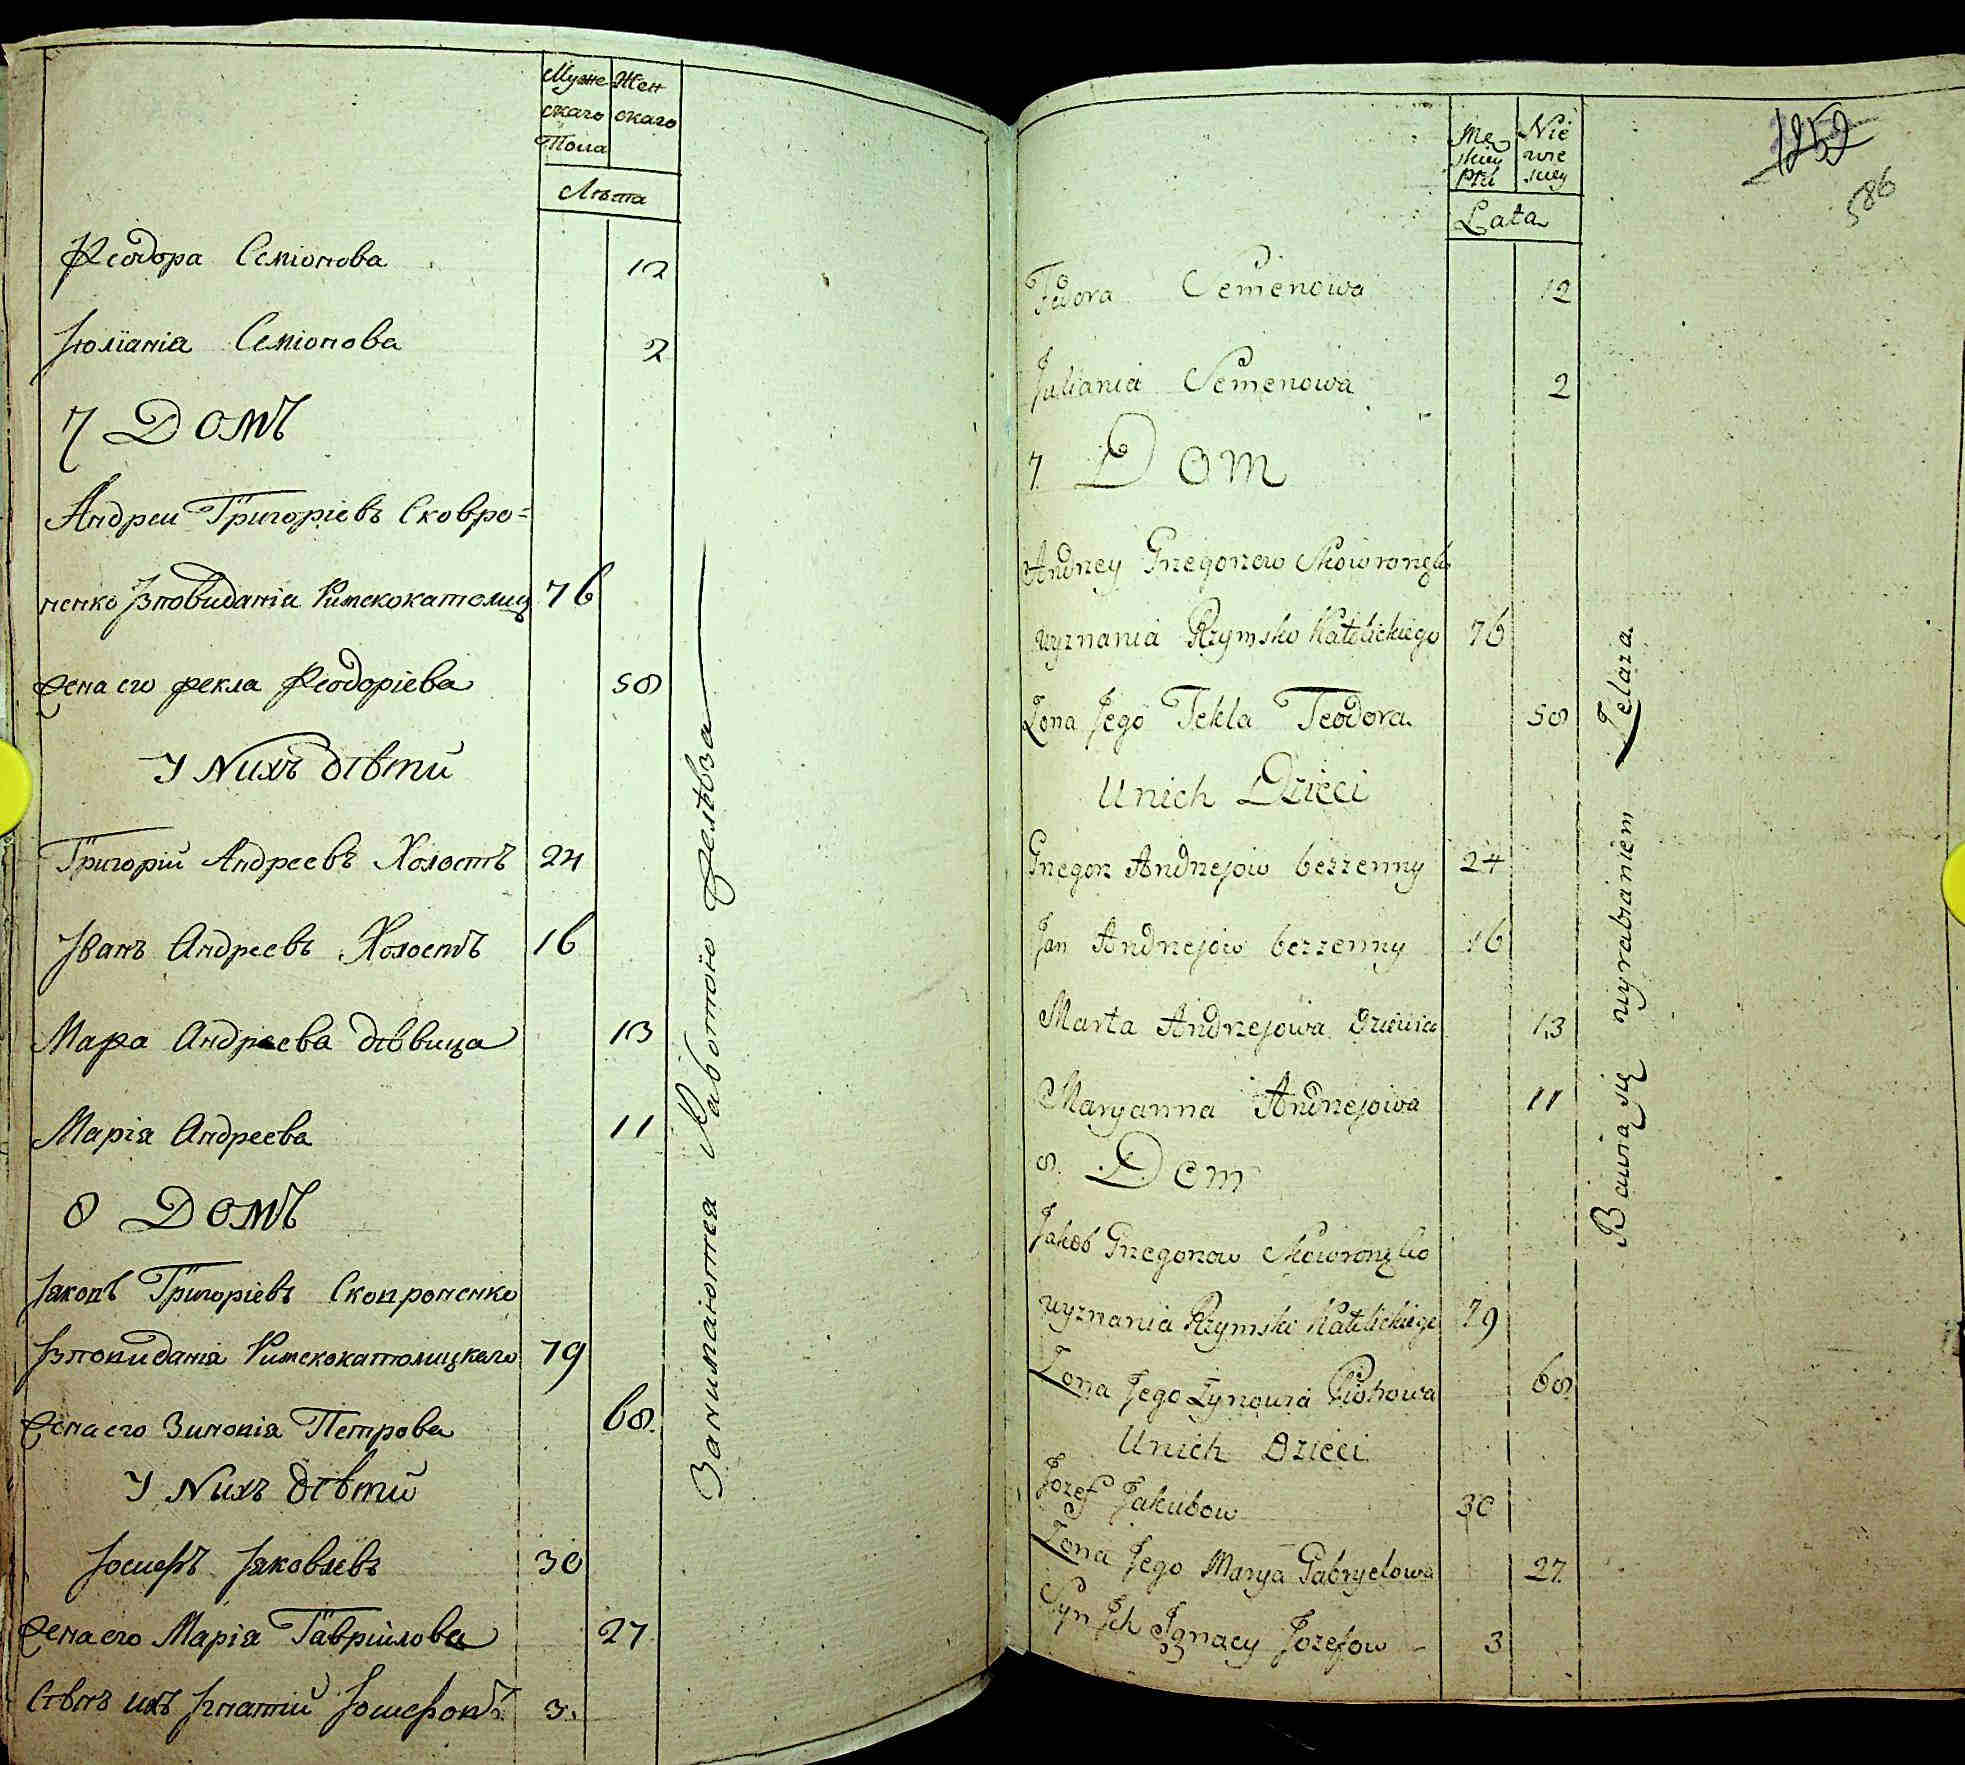 Муже
скаго
Пола
Жен
скаго
Лѣта
Ѳеодора Семіонова 12
Іюліанія Семіонова 2
7 Домъ
Андреи Григоріевъ Сковро=
ненко Ізповиданія Римскокатолиц 76
Жена его Ѳекла Ѳеодоріева 58
У Nихъ дѣти
Григорій Андреевъ Холостъ 24
Іванъ Андреевъ Холостъ 16
Марѳа Андреева дѣвица 13
Марія Андреева 11
8 Домъ
Іяковъ Григоріевъ Сковроненко
Ізповиданія Римскокатолицкаго 79
Жена его Зиновія Петрова 68.
У Nихъ дѣти
Іосифъ Іяковлевъ 30
Жена его Марія Гавріилова 27
Сынъ ихъ Ігнатій Іосифовъ 3.
Занимаются Работою
Mę
skiey
Płci
Nie
wie
sciey
Lata
1252
586
Fedora Semenowa 12
Juliania Semenowa 2
7. Dom
Andrzey Grzegorzew Skowronzko
wyznania Rzymsko Katolickiego 76
Zona Jego Tekla Teodora. 58
U nich Dzieci
Grzegorz Andrzejow bezzenny 24
Jan Andrzejow bezzenny 16
Marta Andrzejowa Dziewica 13
Maryanna Andrzejowa 11
8. Dom
Jakob Grzegorzew Skowronzko
wyznania Rzymsko Katolickiego 79
Zona Jego Zynowia Piotrowa 68
U nich Dzieci
Jozef Jakubow 30
Zona Jego Marya Gabryelowa 27
Syn Ich Ignacy Jozefow 3
Bawią się wyrabianiem Zelaza.